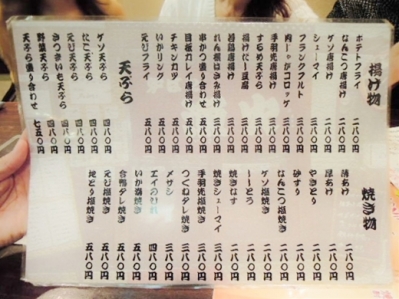 揚げ物
ポテトフライ 二八〇円
なんこつ唐揚げ 二八〇円
ゲソ唐揚げ 二八〇円
シューマイ 二八〇円
フランクフルト 二八〇円
肉じゃがコロッケ 二八〇円
手羽先唐揚げ 三八〇円
するめ天ぷら 三八〇円
揚げだし豆腐 三八〇円
若鶏唐揚げ 三八〇円
れんこんはさみ揚げ 三八〇円
串かつ盛り合わせ 三八〇円
目板カレイ唐揚げ 三八〇円
チキンカツ 三八〇円
いかリング 三八〇円
えびフライ 五八〇円
天ぷら
ゲソ天ぷら 四八〇円
たこ天ぷら 四八〇円
えび天ぷら 五八〇円
さつまいも天ぷら 四八〇円
野菜天ぷら 四八〇円
天ぷら盛り合わせ 七五〇円
焼き物
薄あげ 二八〇円
厚あげ 二八〇円
やきとり 二八〇円
砂ずり 二八〇円
なんこつ塩焼き 二八〇円
ゲソ塩焼き 二八〇円
焼きなす 二八〇円
焼きシューマイ 二八〇円
手羽先塩焼き 三八〇円
つくねタレ焼き 三八〇円
メザシ 三八〇円
エイのひれ 四八〇円
合鴨タレ焼き 五八〇円
いか姿焼き 五八〇円
えび塩焼き 五八〇円
地どり塩焼き 五八〇円